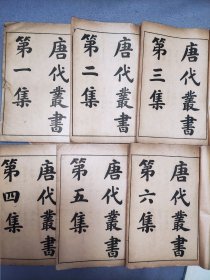 唐代叢書
第一集
唐代叢書
第二集
唐代叢書
第三集
唐代叢書
第四集
唐代叢書
第五集
唐代叢書
第六集